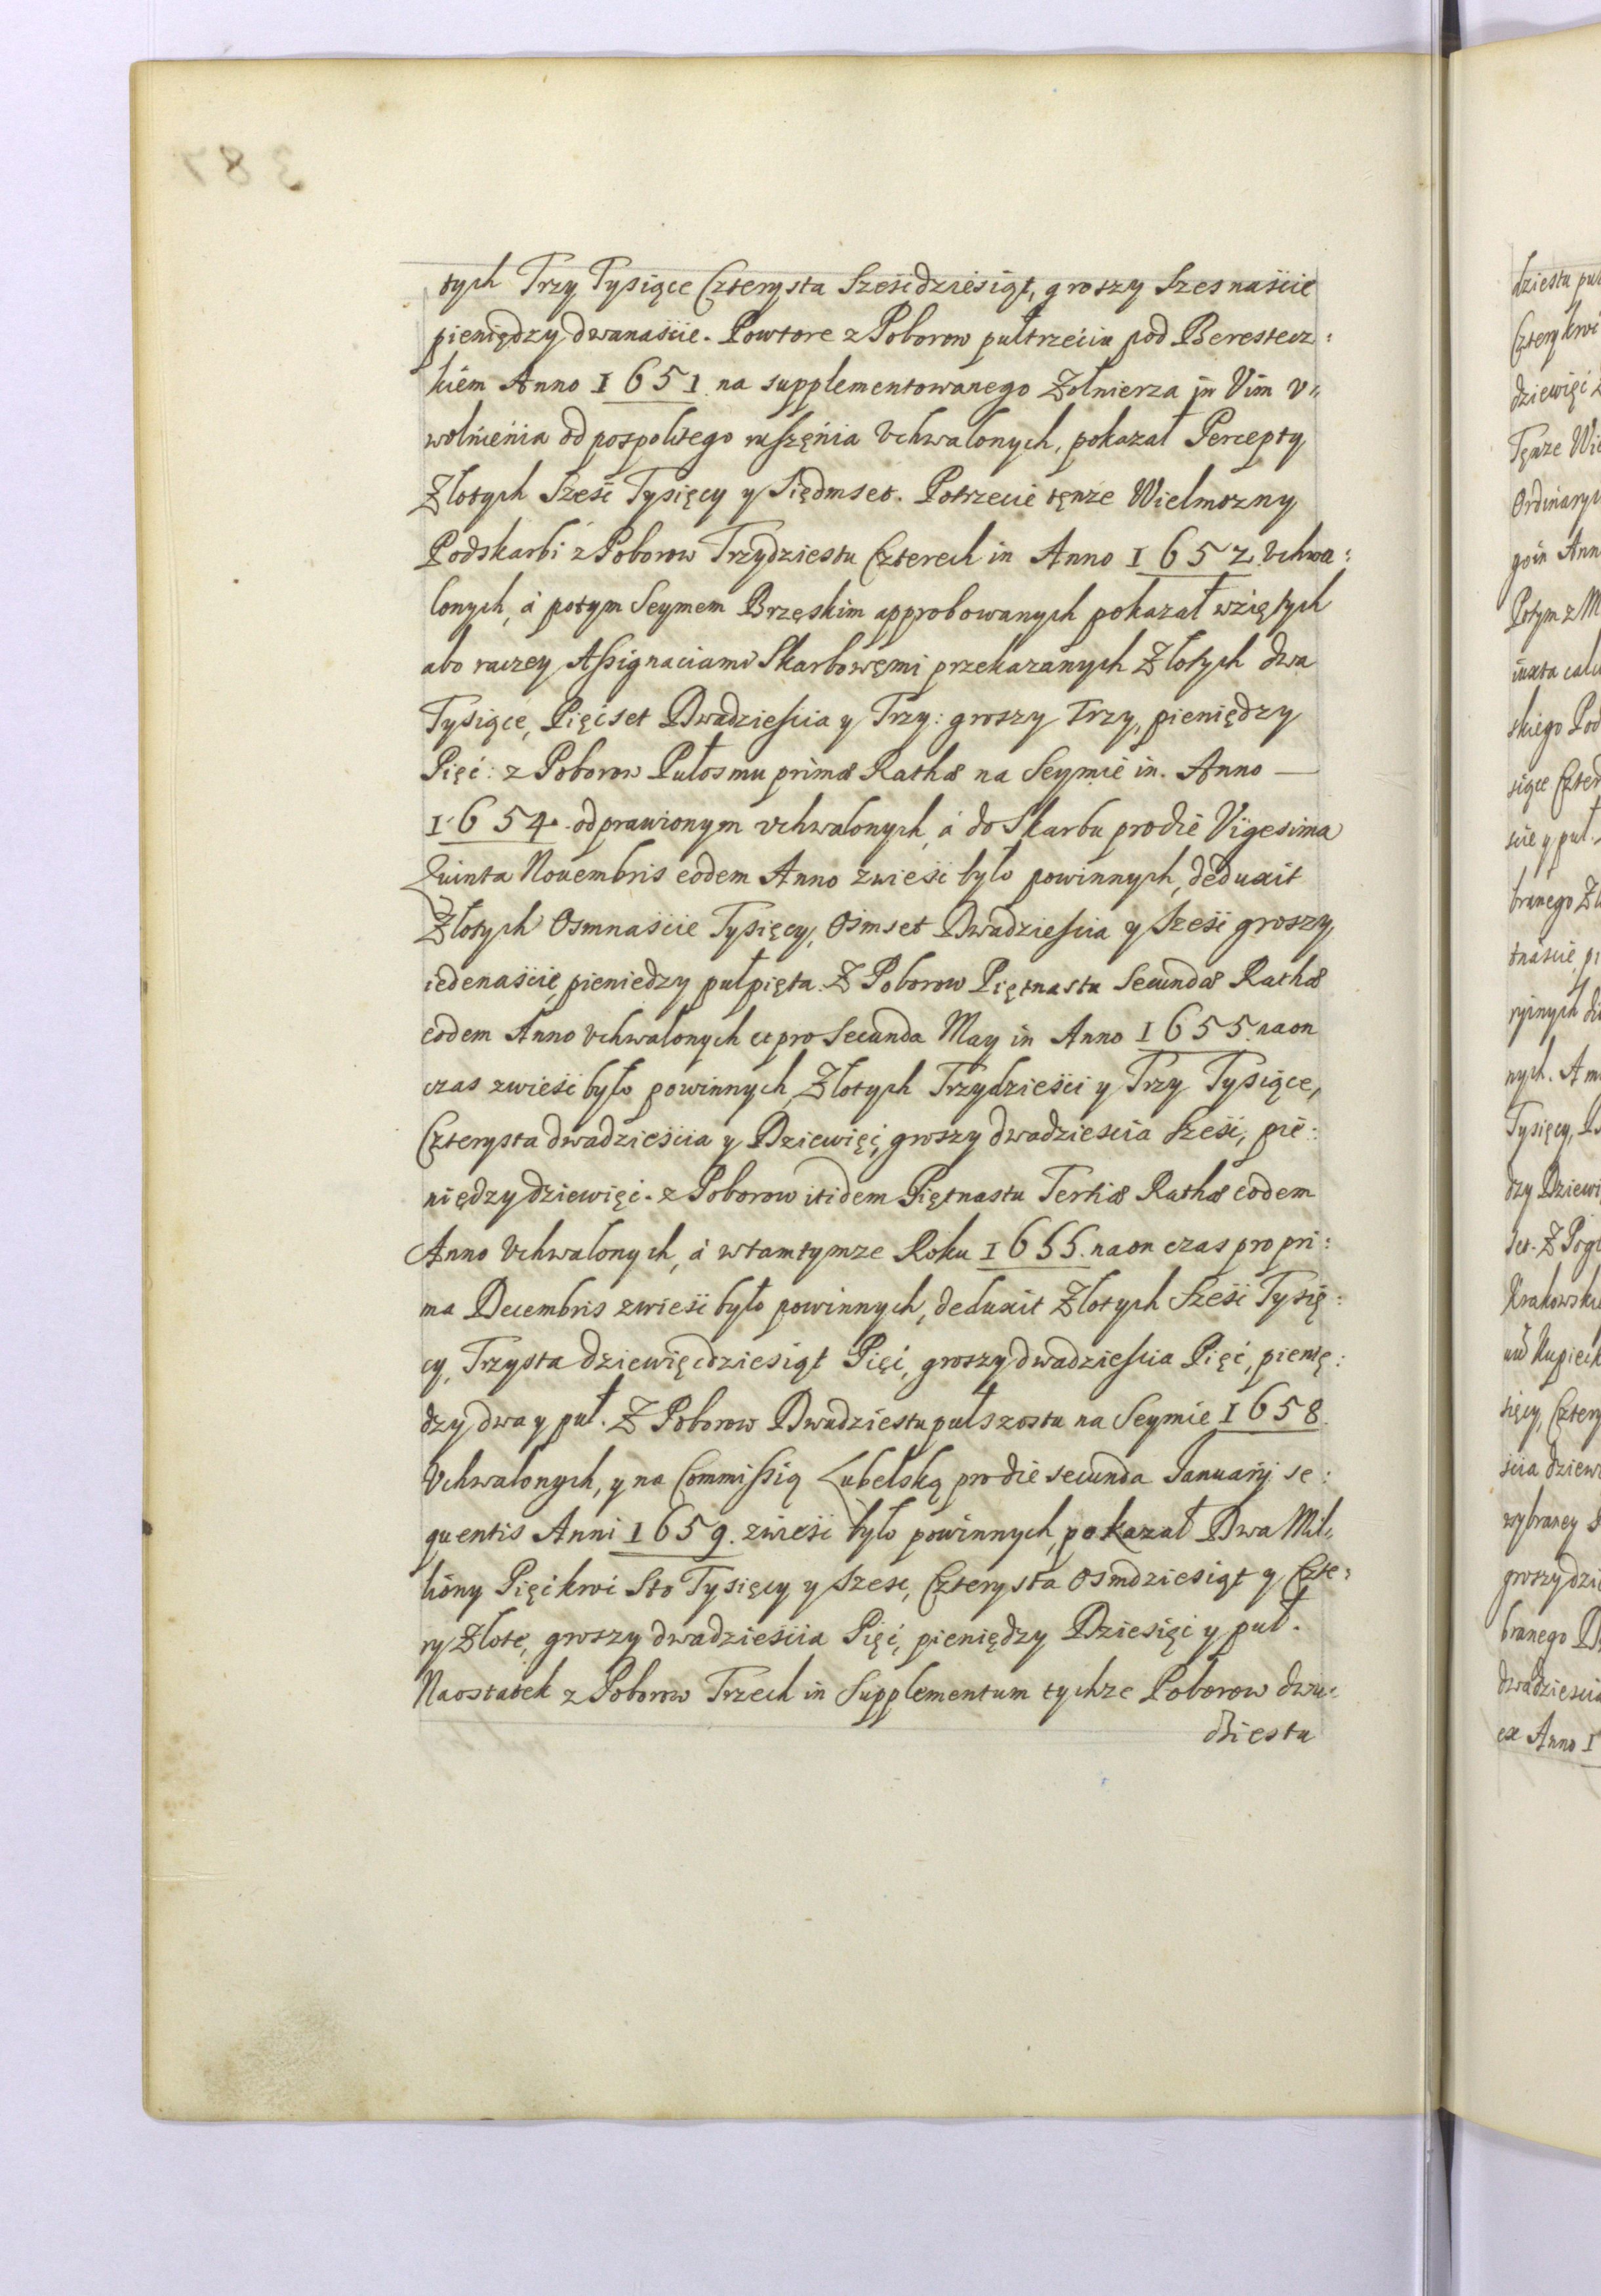 tych Trzy Tysiące Czterysta Sześćdziesiąt, groszy Szesnaście
pieniędzy dwanaście. Powtore z Poborow pułtrzeciu pod Berestecz:
kiem Anno 1651. na supplementowanego Zołnierza in Vim v„
wolnienia od pospolitego ruszęnia Vchwalonych, pokazał Percepty
Złotych Sześć Tysięcy y Siedmset. Potrzecie tęnze Wielmozny
Podskarbi z Poborow Trzydziestu Czterech in Anno 1652. Vchwa:
lonych, á potym Seymem Brzęskim approbowanych pokazał wziętych
abo raczey Assignaciami Skarbowęmi przekazanych Złotych dwa
Tysiące, Pięćset Dwadziescia y Trzy: groszy Trzy, pieniędzy
Pięć: z Poborow Pułosmu primæ Rathæ na Seymie in. Anno —
1654. odprawionym vchwalonych, á do Skarbu pro die Vigesima
Quinta Nouembris eodem Anno zwieść było powinnych, deduxit
Złotych Osmnaście Tysięcy, Ośmset Dwadziescia y Sześć groszy
iedenaście, pieniedzy pułpięta. Z Poborow Piętnastu Secundæ Rathæ
eodem Anno Vchwalonych et pro Secunda May in Anno 1655. naon
czas zwieść było powinnych, Złotych Trzydzieści y Trzy Tysiące,
Czterysta dwadzieścia y Dziewięć, groszy dwadziescia Sześć, pie:
niędzy dziewięć. z Poborow itidem Piętnastu Tertiæ Rathæ eodem
Anno Vchwalonych, á wtamtymze Roku 1655. naon czas pro pri:
ma Decembris zwieść było powinnych, deduxit Złotych Sześć Tysię:
cy, Trzysta dziewięćdziesiąt Pięć, groszy dwadziescia Pięć, pienię:
dzy dwa y puł. Z Poborow Dwudziestu pułszosta na Seymie 1658.
Vchwalonych, y na Commissią Lubelską pro die secunda Januarij se:
quentis Anni 1659. zwieść było powinnych, pokazał Dwa Mil„
liony Pięćkroć Sto Tysięcy y Szesc, Czterysta Osmdziesiąt y Czte:
ry Złote, groszy dwadzieścia Pięć, pieniędzy Dziesięć y puł.
Naostatek z Poborow Trzech in Supplementum tychze Poborow dwu:
dziestu